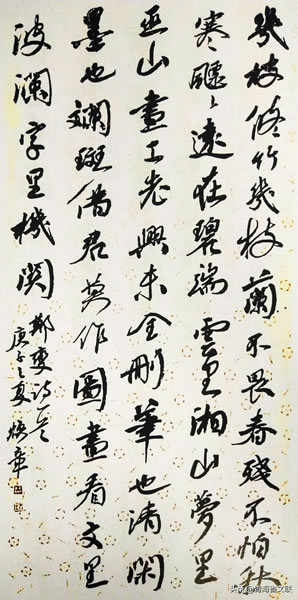 幾枝修竹幾枝蘭不畏春殘不怕秋
寒飄々遠在碧端雲里湘山夢里
巫山畫工老興未全刪筆也清閑
墨也斕斑借君莫作圖畫看文里
波瀾字里機関
鄭燮诗一首
庚子之夏 焕章
头条 @青海省文联